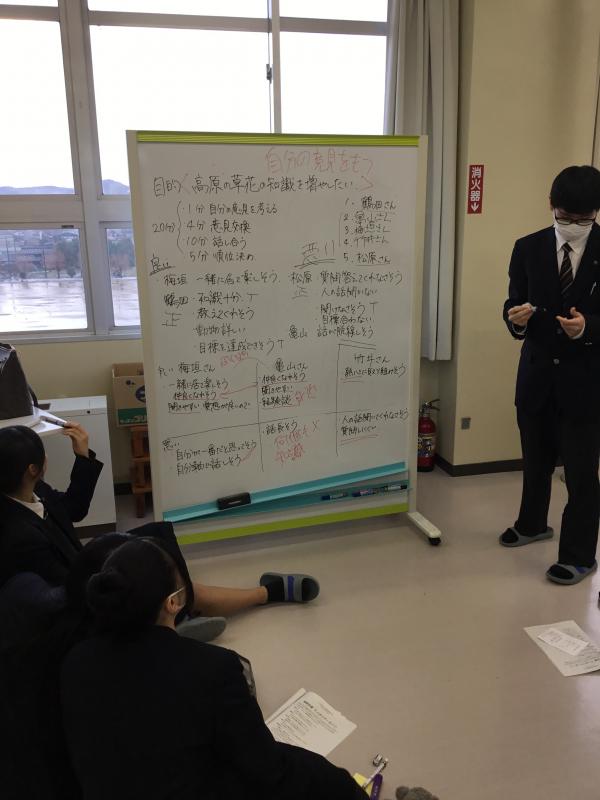 自分の意見をもつ
目的 高原の草花の知識を増やしたい
20分
・1分 自分の意見を考える
・4分 意見交換
・10分 話し合う
・5分 順位決め
1. 鶴田さん
2. 亀山さん
3. 梅垣さん
4. 竹井さん
5. 松原さん
良い
悪い
梅垣 一緒に居て楽しそう
鶴田・知識十分
正 ・教えてくれそう
・動物詳しい
・目標を達成できそう
松原 質問答えてくれなそう
正 ・人の話聞かない
・聞けなさそう
・目標合わない
亀山 話が脱線しそう
良い 梅垣さん
・一緒に居て楽しそう
仲良くなれそう
亀山さん
仲良くなれそう
聞きやすい
経験談
竹井さん
熱心に取り組めそう
悪い
・自分が一番だと思ってそう
・自分勝手に話しそう
・話長そう
人の話聞いてくれなさそう
質問しにくい
消火器